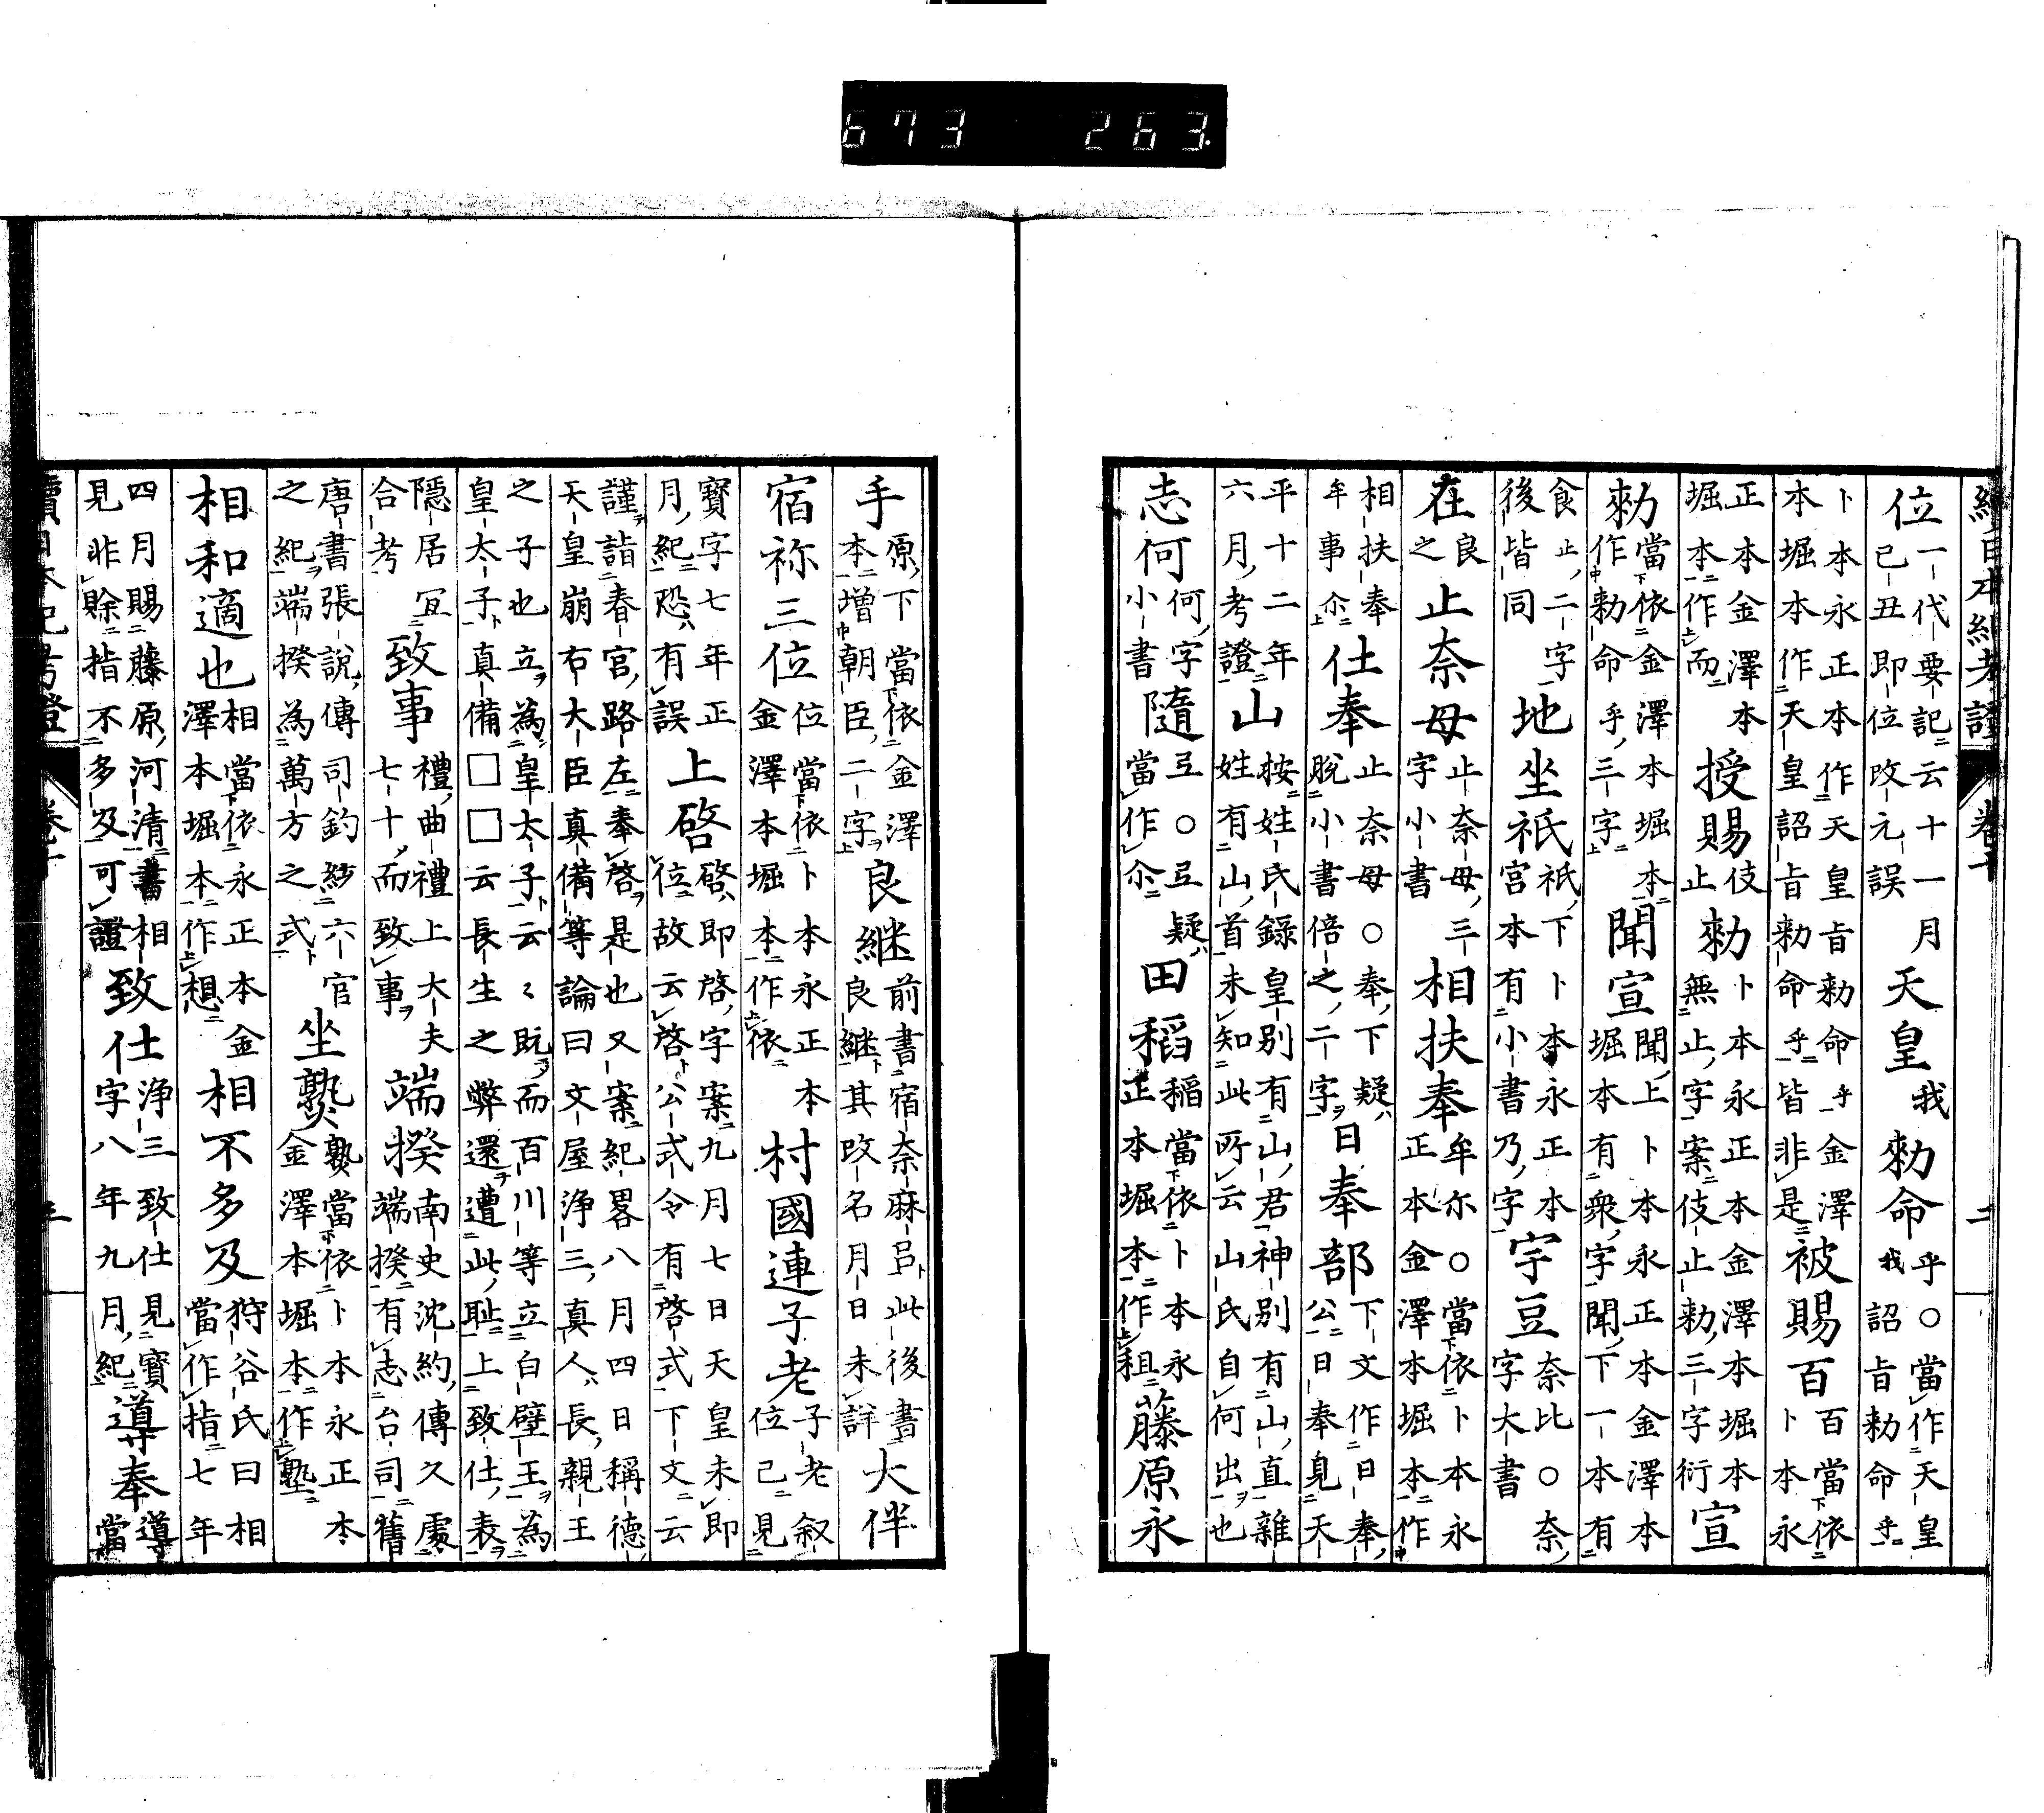 673 263.
續日本紀考證 卷十 二
位一代要記云十一月己丑即位改元誤 天皇我勅命乎○當作天皇我詔旨勅命乎
卜本永正本作天皇旨勅命乎金澤本堀本作天皇詔旨勅命乎皆非是 被賜百百當依卜本永
正本金澤本堀本作而 授賜伎止勅卜本永正本金澤本堀本無止字案伎止勅三字衍 宣
勅當依金澤本堀本作勅命乎三字 聞宣聞上卜本永正本金澤本堀本有衆字聞下一本有
食止二字後皆同 地坐祇祇下卜本永正本宮本有小書乃字 宇豆奈比○奈字大書
在良之 止奈母止奈母三字小書 相扶奉牟尓○當依卜本永正本金澤本堀本作
相扶奉牟事尒 仕奉止奈母○奉下疑脫小書倍之二字 日奉部下文作日奉公日奉見天
平十二年六月考證 山按姓氏錄皇別有山君神別有山直雜姓有山首未知此所云山氏自何出也
志何何字小書 隨𢎨○𢎨疑當作尒 田稻稻當依卜本永正本堀本作租 藤原永
手原下當依金澤本增朝臣二字 良継前書宿奈麻呂此後書良継其改名月日未詳 大伴
宿祢三位位當依卜本永正本金澤本堀本作依 村國連子老子老叙位己見
寶字七年正月紀恐有誤 上啓啓即啓字案九月七日天皇未即位故云啓公式令有啓式下文云
謹詣春宮路左奉啓是也又案紀畧八月四日稱德天皇崩右大臣真備等論曰文屋浄三真人長親王
之子也立為皇太子云〻既而百川等立白壁王為皇太子真備□□云長生之弊還遭此耻上致仕表
隱居冝合考 致事禮曲禮上大夫七十而致事 端揆南史沈約傳久處端揆有志台司舊
唐書張說傳司鈞緫六官之紀端揆為萬方之式 坐𡏮𡏮當依卜本永正本金澤本堀本作墊
相和適也相當依永正本金澤本堀本作想 相不多及狩谷氏曰相當作指七年
四月賜藤原河清書相見非賖指不多及可證 致仕浄三致仕見寶字八年九月紀 導奉導當
續日本紀考證 卷十 三